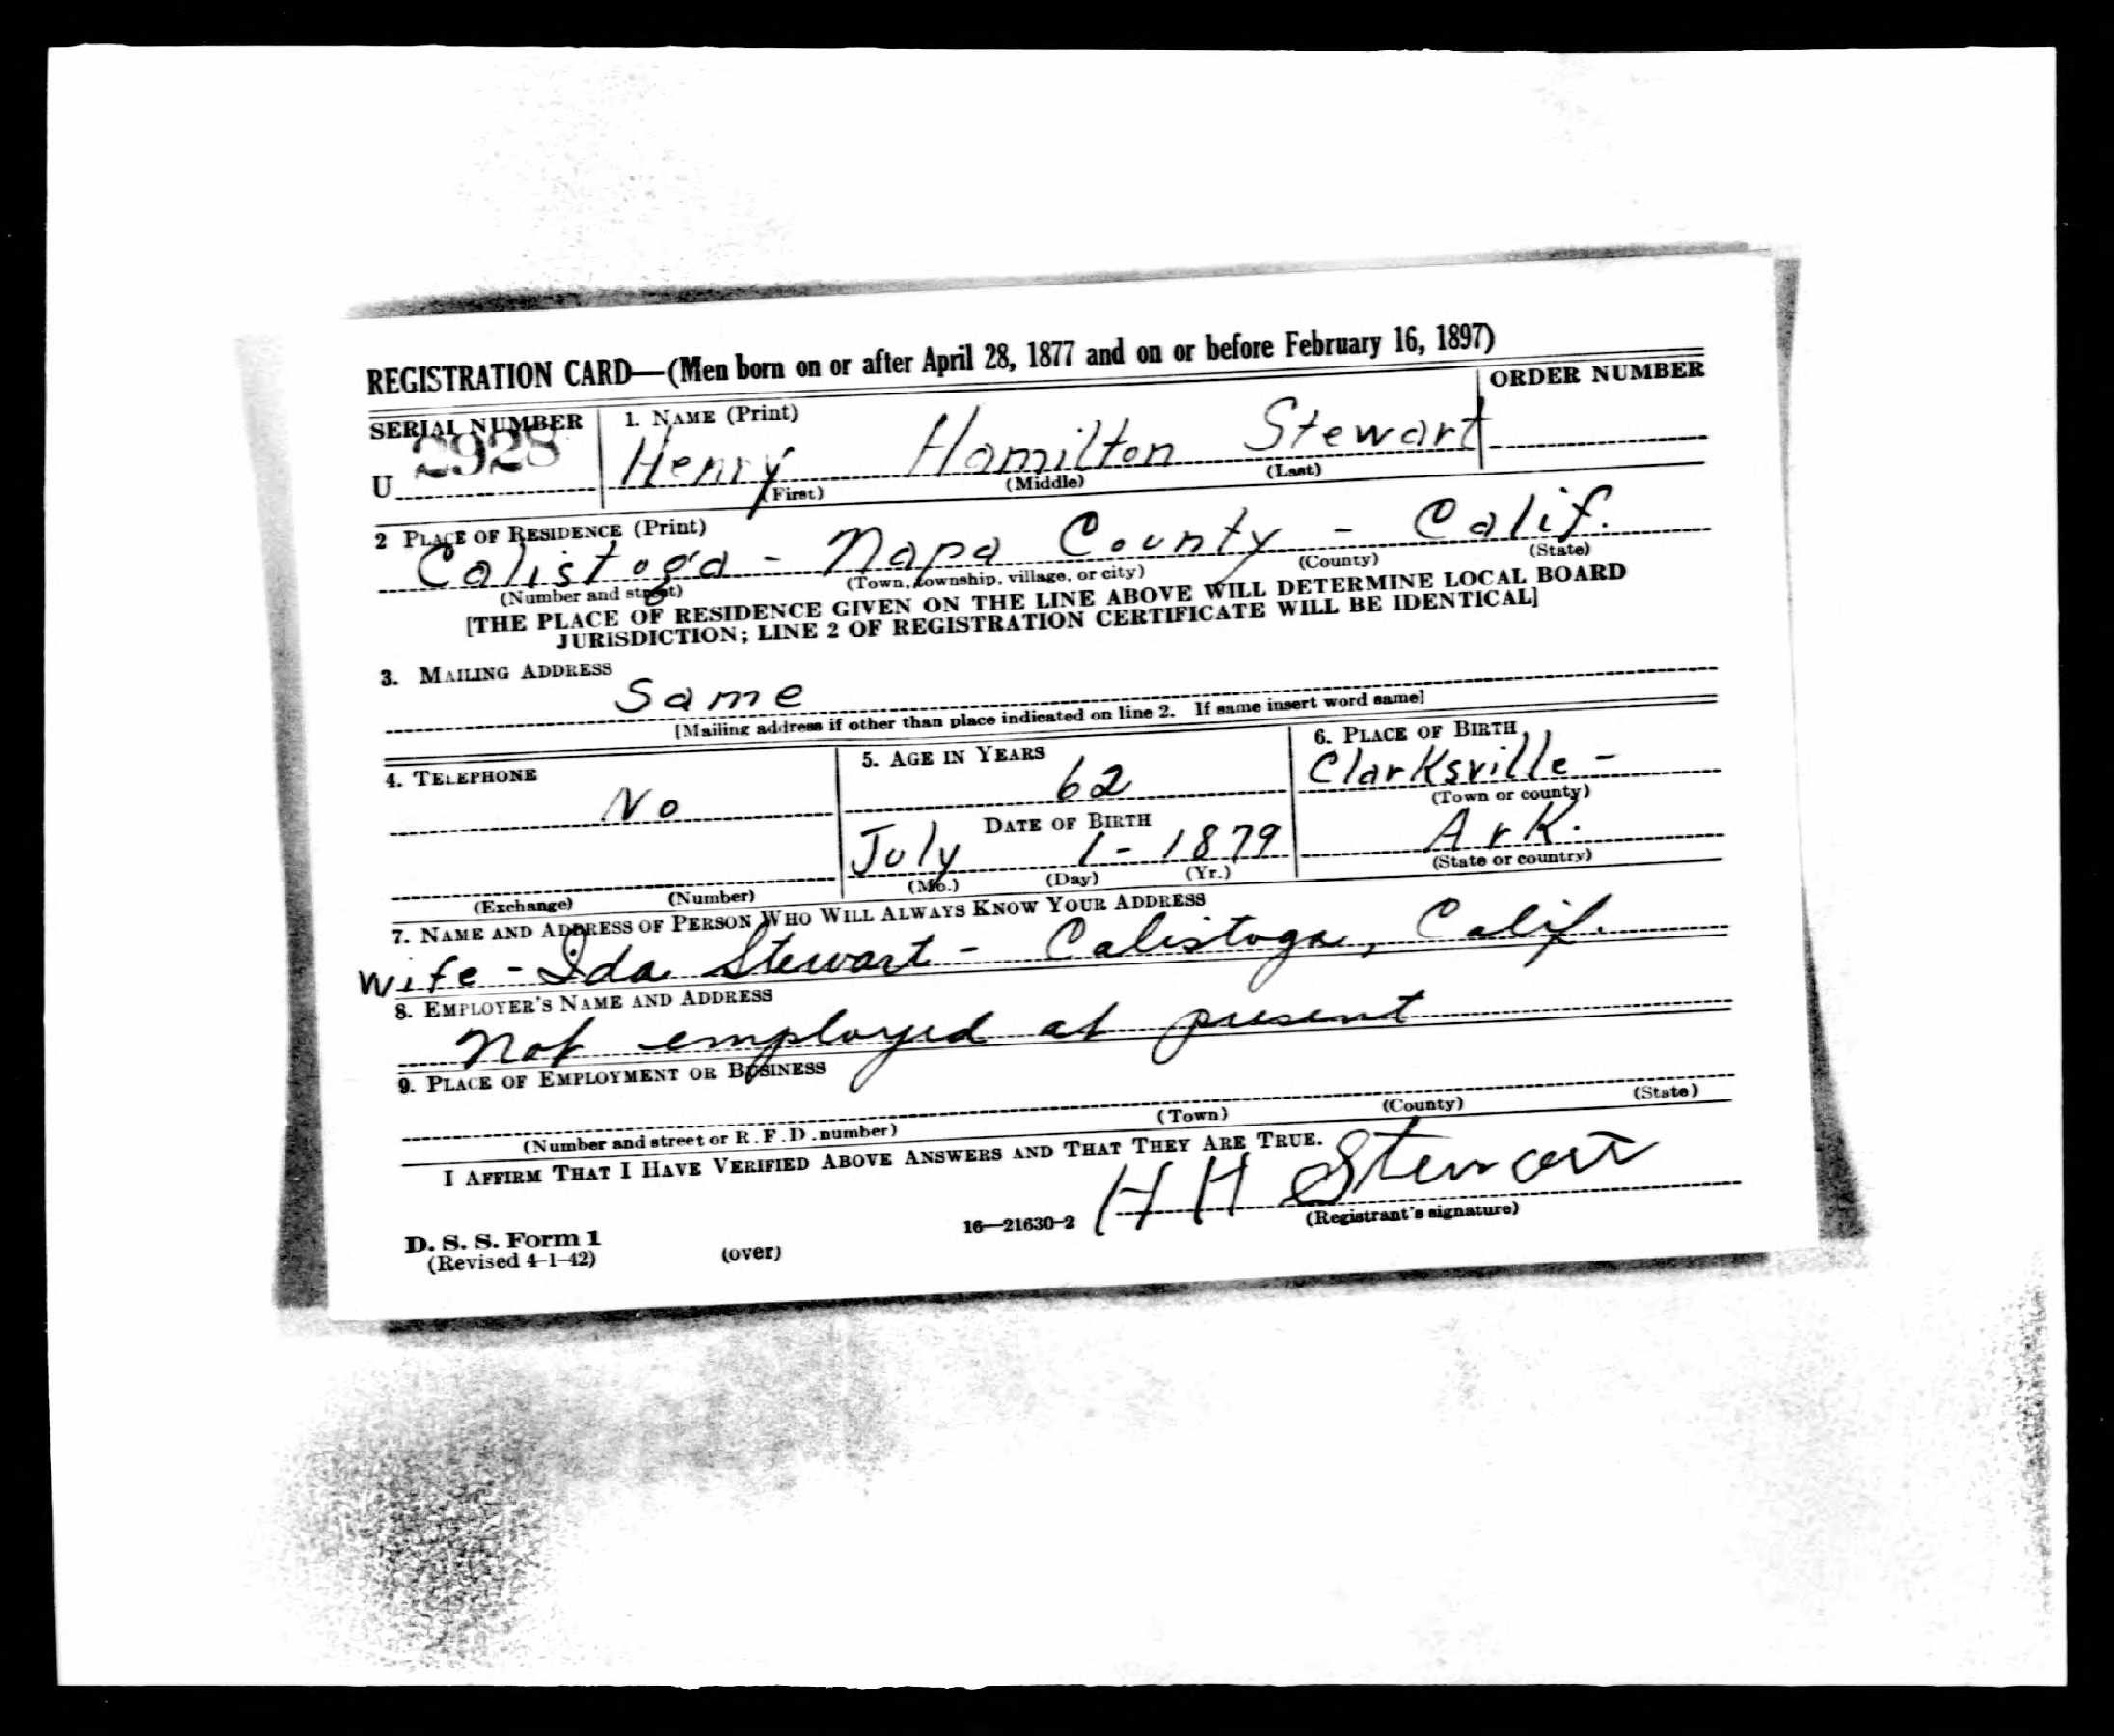 REGISTRATION CARD—(Men born on or after April 28, 1877 and on or before February 16, 1897)
SERIAL NUMBER
1. NAME (Print)
ORDER NUMBER
U 2928
Henry Hamilton Stewart
(First) (Middle) (Last)
2 PLACE OF RESIDENCE (Print)
Calistoga - Napa County - Calif.
(Number and street) (Town, township, village, or city) (County) (State)
[THE PLACE OF RESIDENCE GIVEN ON THE LINE ABOVE WILL DETERMINE LOCAL BOARD
JURISDICTION; LINE 2 OF REGISTRATION CERTIFICATE WILL BE IDENTICAL]
3. MAILING ADDRESS
Same
[Mailing address if other than place indicated on line 2. If same insert word same]
4. TELEPHONE
No
(Exchange) (Number)
5. AGE IN YEARS
62
DATE OF BIRTH
July 1 - 1879
(Mo.) (Day) (Yr.)
6. PLACE OF BIRTH
Clarksville -
(Town or county)
Ark.
(State or country)
7. NAME AND ADDRESS OF PERSON WHO WILL ALWAYS KNOW YOUR ADDRESS
Wife - Ida Stewart - Calistoga, Calif.
8. EMPLOYER'S NAME AND ADDRESS
Not employed at present
9. PLACE OF EMPLOYMENT OR BUSINESS
(Number and street or R. F. D. number) (Town) (County) (State)
I AFFIRM THAT I HAVE VERIFIED ABOVE ANSWERS AND THAT THEY ARE TRUE.
H H Stewart
D. S. S. Form 1
(Revised 4-1-42) (over) 16—21630-2 (Registrant's signature)